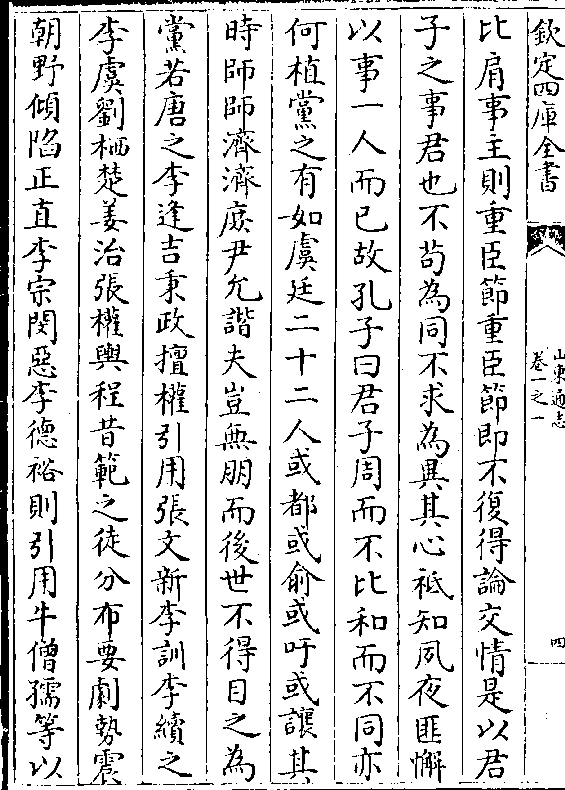 欽定四庫全書
山東通志
卷一之一
四
比肩事主則重臣節重臣節即不復得論交情是以君
子之事君也不苟為同不求為異其心祗知夙夜匪懈
以事一人而已故孔子曰君子周而不比和而不同亦
何植黨之有如虞廷二十二人或都或俞或吁或讓其
時師師濟濟庶尹允諧夫豈無朋而後世不得目之為
黨若唐之李逢吉秉政擅權引用張文新李訓李續之
李虞劉栖楚姜洽張權輿程昔範之徒分布要劇勢震
朝野傾陷正直李宗閔惡李德裕則引用牛僧孺等以